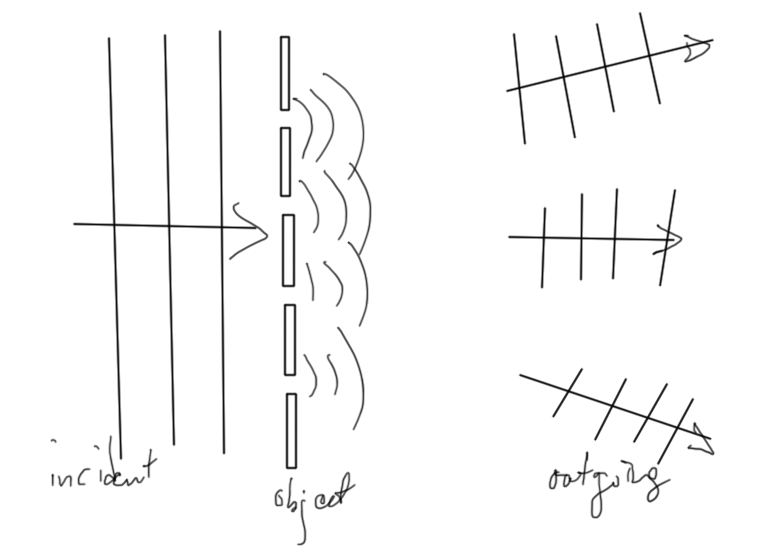 incident
object
outgoing